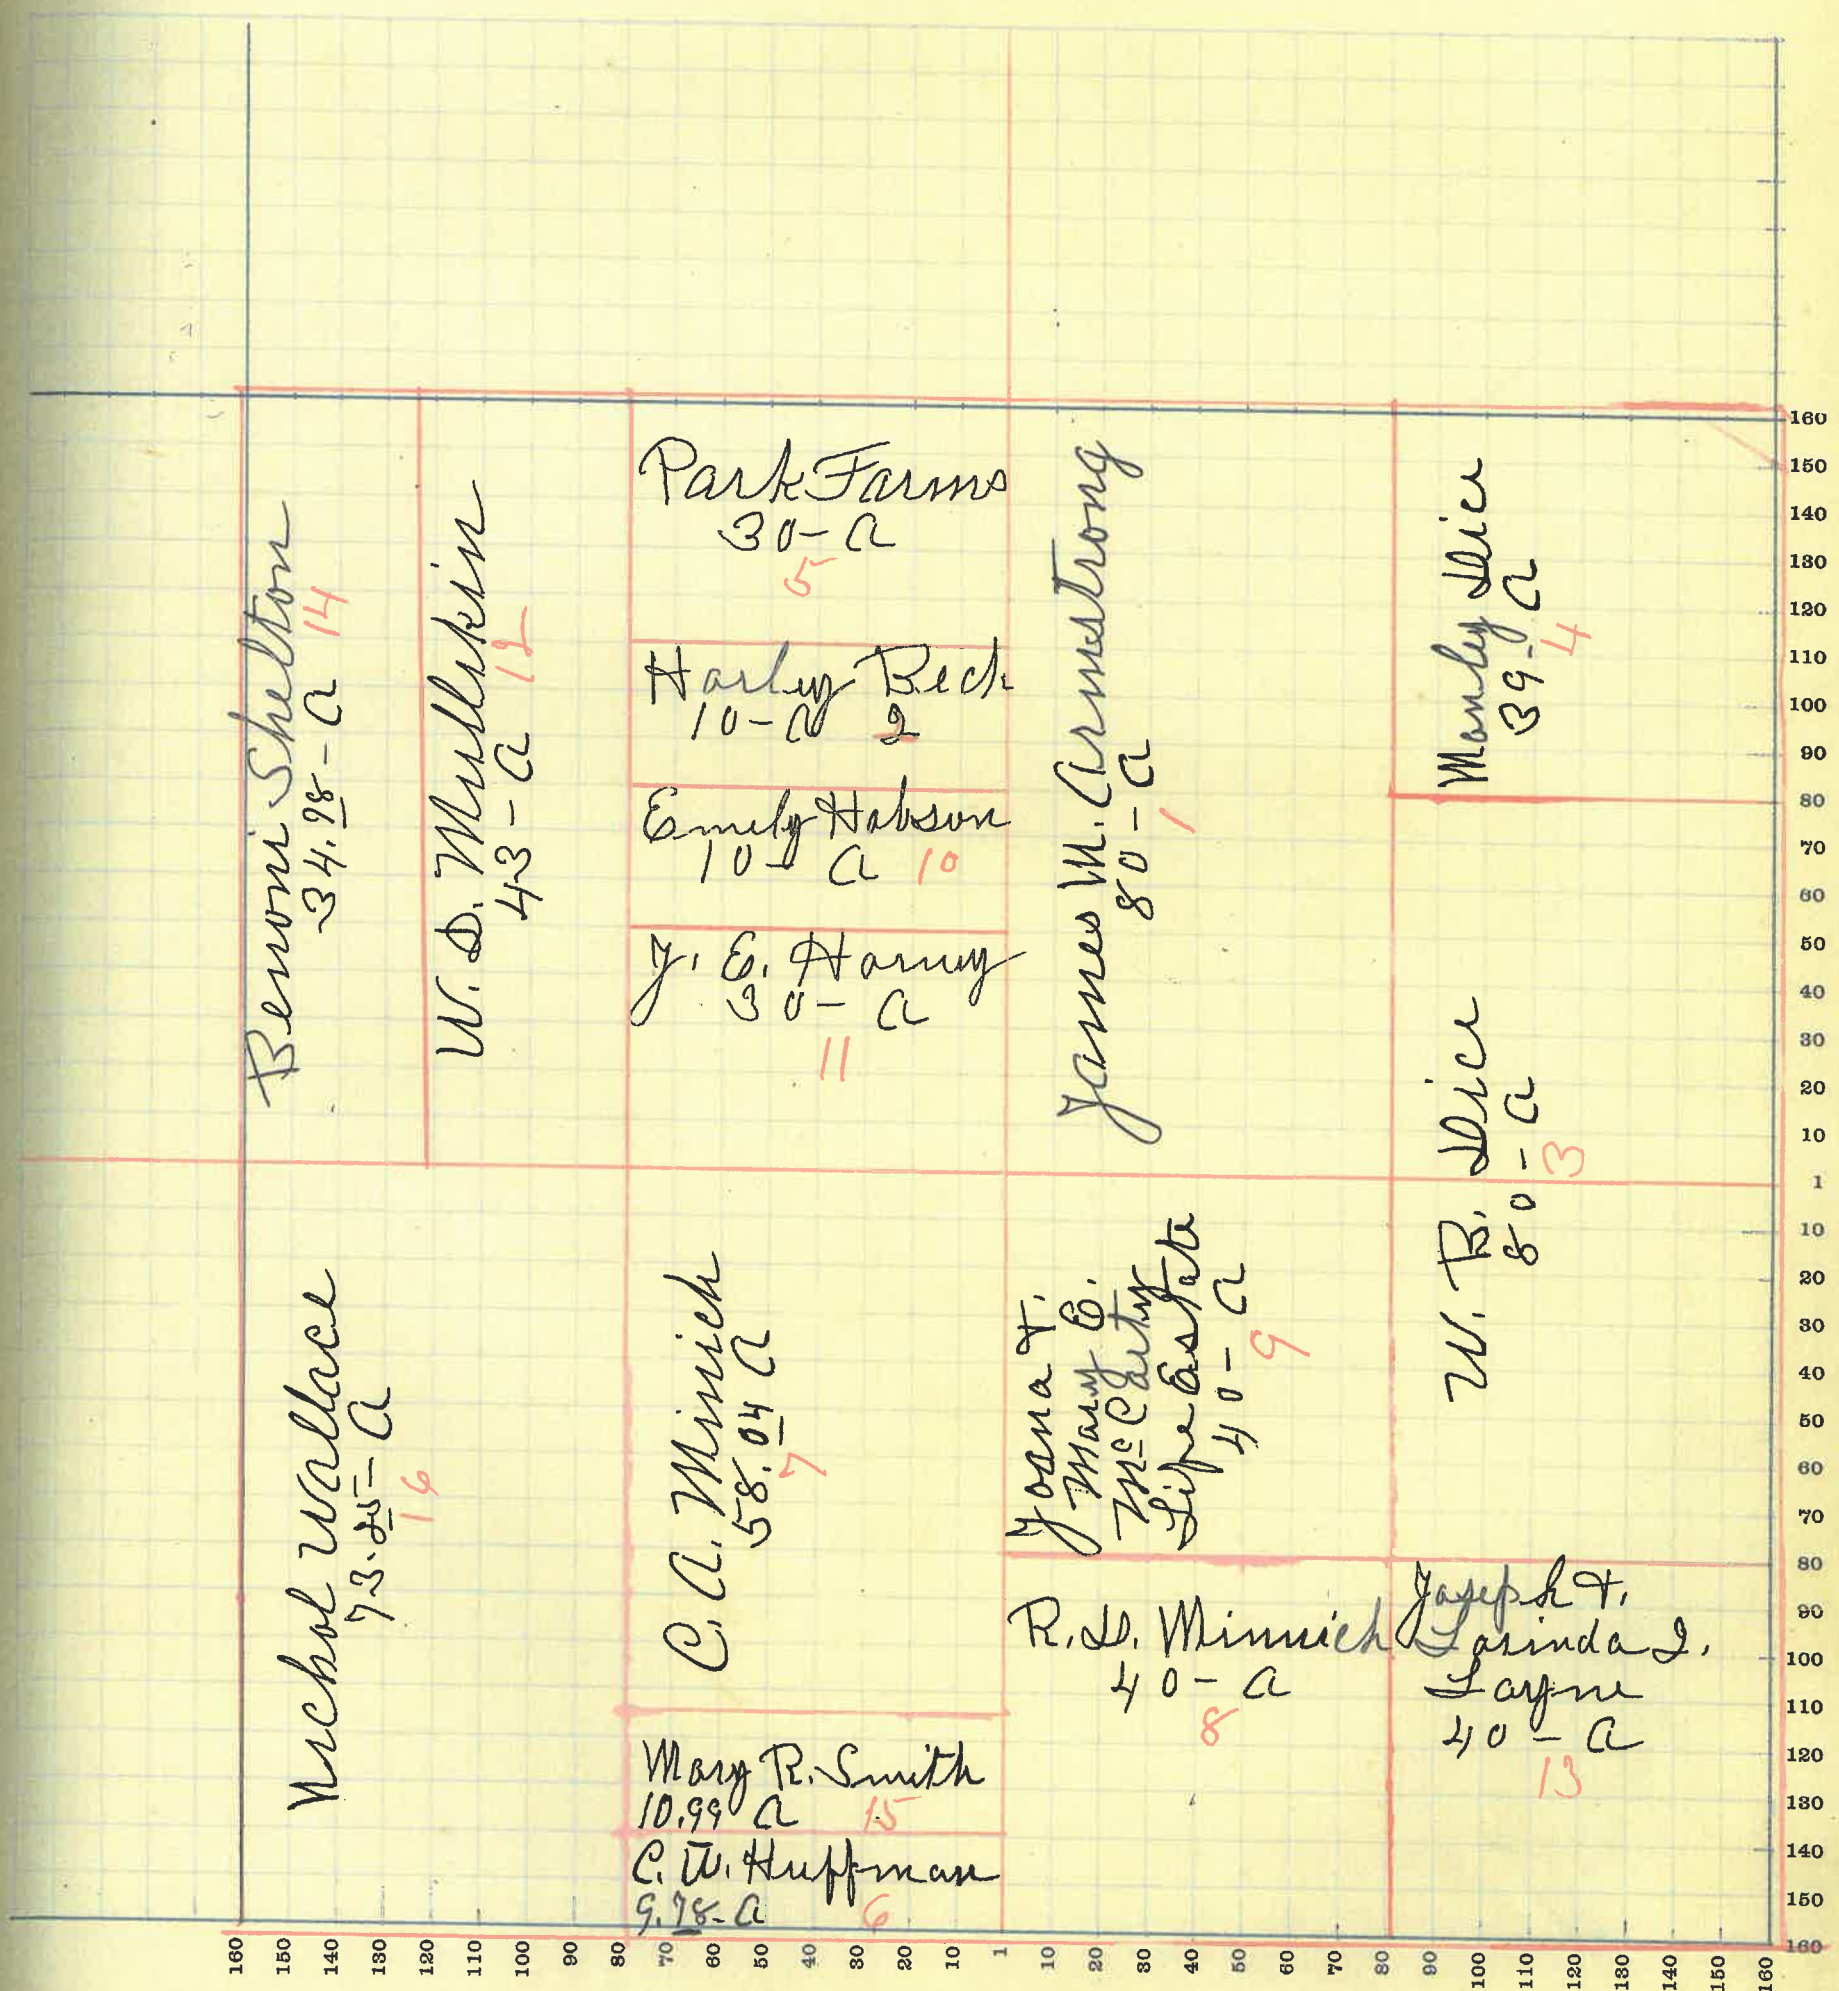 Benoni Shelton
34.98 - A 14
W. D. Mullikin
43 - A 12
Park Farms
30 - A
5
Harley Beck
10 - A 2
Emily Hobson
10 - A 10
J. E. Harney
30 - A
11
James M. Armstrong
80 - A
1
Manly Dice
39 - A
4
W. B. Dice
80 - A
3
Nichol Wallace
73.25 - A
16
C. A. Minnich
58.04 A
7
Mary E.
McCarty
Life Estate
40 - A
9
R. D. Minnich
40 - A
8
Joseph &
Layne
40 - A
13
Mary R. Smith
10.99 A 15
C. W. Huffman
9.78 - A 6
160
150
140
130
120
110
100
90
80
70
60
50
40
30
20
10
1
10
20
30
40
50
60
70
80
90
100
110
120
130
140
150
160
160 150 140 130 120 110 100 90 80 70 60 50 40 30 20 10 1 10 20 30 40 50 60 70 80 90 100 110 120 130 140 150 160